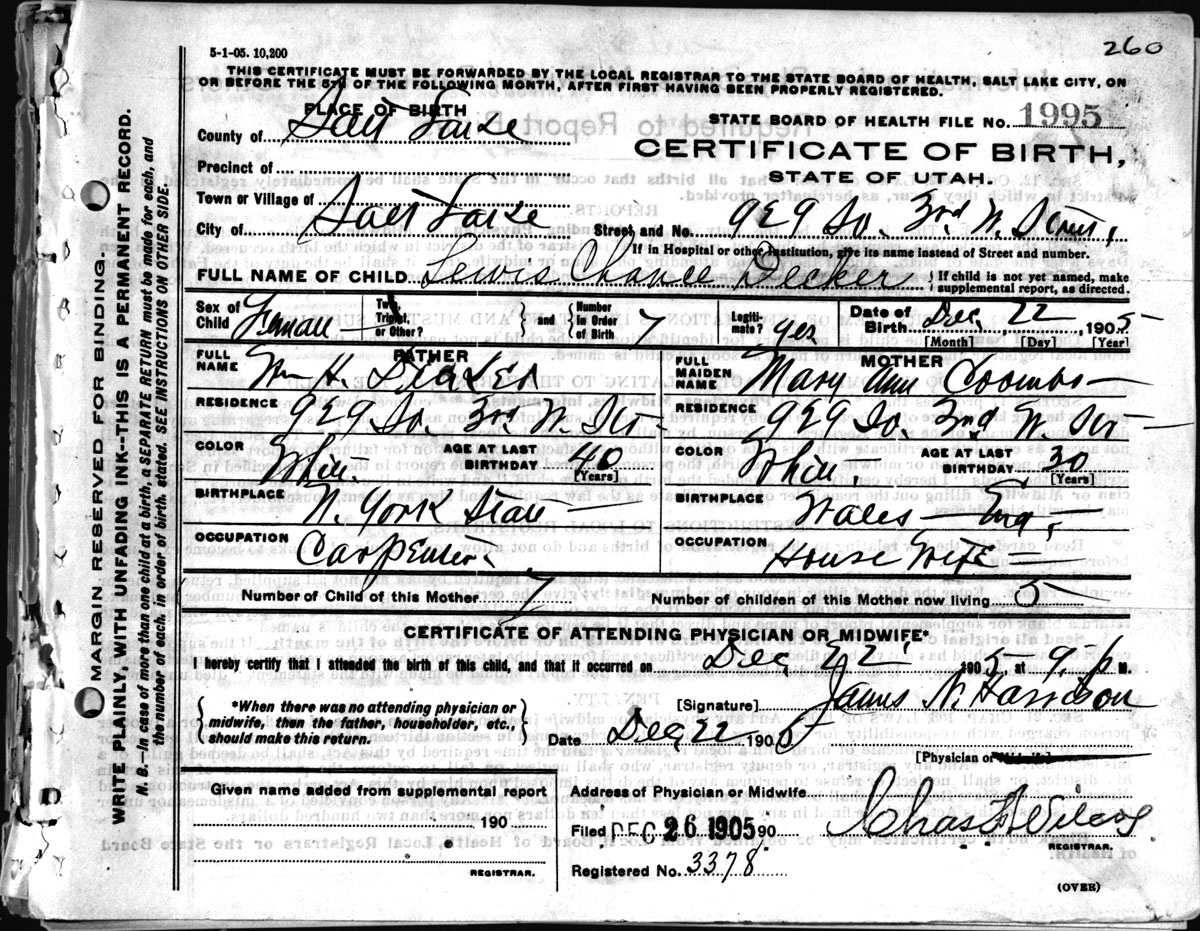 260
5-1-05. 10,200
THIS CERTIFICATE MUST BE FORWARDED BY THE LOCAL REGISTRAR TO THE STATE BOARD OF HEALTH, SALT LAKE CITY, ON
OR BEFORE THE 5TH OF THE FOLLOWING MONTH, AFTER FIRST HAVING BEEN PROPERLY REGISTERED.
PLACE OF BIRTH
STATE BOARD OF HEALTH FILE NO. 1995
County of Salt Lake
CERTIFICATE OF BIRTH,
Precinct of
STATE OF UTAH.
Town or Village of
City of Salt Lake Street and No. 929 So. 3rd W. Street,
If in Hospital or other Institution, give its name instead of Street and number.
FULL NAME OF CHILD Lewis Chance Decker { If child is not yet named, make
supplemental report, as directed.
Sex of Child Female Twin, Triplet, or Other? } and { Number in Order of Birth 7 Legiti-mate? yes Date of Birth Dec, 22, 1905
[Month] [Day] [Year]
FATHER
FULL NAME Wm H. Decker
RESIDENCE 929 So. 3rd W. Str
COLOR White. AGE AT LAST BIRTHDAY 40
[Years]
BIRTHPLACE N. York State
OCCUPATION Carpenter.
MOTHER
FULL MAIDEN NAME Mary Ann Coombs
RESIDENCE 929 So. 3rd W. Str
COLOR White, AGE AT LAST BIRTHDAY 30
[Years]
BIRTHPLACE Wales - Eng,
OCCUPATION House Wife
Number of Child of this Mother 7 Number of children of this Mother now living 5
CERTIFICATE OF ATTENDING PHYSICIAN OR MIDWIFE*
I hereby certify that I attended the birth of this child, and that it occurred on Dec, 22 1905 at 9, P M.
{ *When there was no attending physician or
midwife, then the father, householder, etc.,
should make this return. }
[Signature] James N. Harrison
Date Dec, 22 - 1905
[Physician or
Given name added from supplemental report
190
REGISTRAR.
Address of Physician or Midwife
Filed DEC 26 1905 90 Chas
REGISTRAR.
Registered No. 3378
(OVER)
MARGIN RESERVED FOR BINDING.
WRITE PLAINLY, WITH UNFADING INK--THIS IS A PERMANENT RECORD.
N. B.—In case of more than one child at a birth, a SEPARATE RETURN must be made for each, and
the number of each, in order of birth, stated. SEE INSTRUCTIONS ON OTHER SIDE.